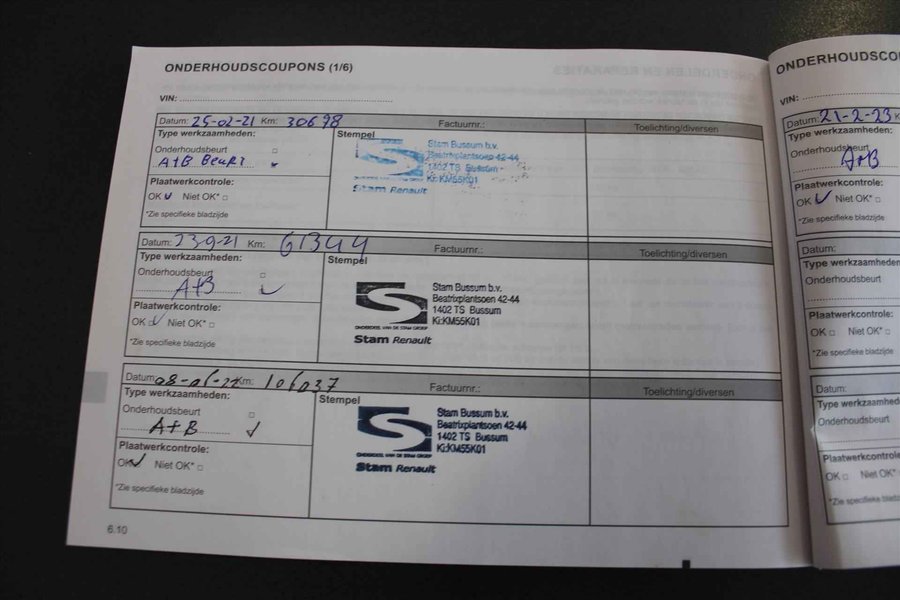 ONDERHOUDSCOUPONS (1/6)
VIN:
Datum: 25-02-21 Km: 30698 Factuurnr.: Toelichting/diversen
Type werkzaamheden: Stempel
Onderhoudsbeurt
A+B Beurt
Plaatwerkcontrole:
OK Niet OK*
*Zie specifieke bladzijde
Stam Bussum b.v.
Beatrixplantsoen 42-44
1402 TS Bussum
Ki:KM55K01
Stam Renault
Datum: 23-9-21 Km: 61344 Factuurnr.: Toelichting/diversen
Type werkzaamheden: Stempel
Onderhoudsbeurt
A+B
Plaatwerkcontrole:
OK Niet OK*
*Zie specifieke bladzijde
Stam Bussum b.v.
Beatrixplantsoen 42-44
1402 TS Bussum
Ki:KM55K01
ONDERDEEL VAN DE STAM GROEP
Stam Renault
Datum: 08-06-22 Km: 106037 Factuurnr.: Toelichting/diversen
Type werkzaamheden: Stempel
Onderhoudsbeurt
A+B
Plaatwerkcontrole:
OK Niet OK*
*Zie specifieke bladzijde
Stam Bussum b.v.
Beatrixplantsoen 42-44
1402 TS Bussum
Ki:KM55K01
ONDERDEEL VAN DE STAM GROEP
Stam Renault
6.10
ONDERHOUDSCOU
VIN:
Datum: 21-2-23 K
Type werkzaamheden:
Onderhoudsbeurt
A+B
Plaatwerkcontrole:
OK Niet OK*
*Zie specifieke bladzijde
Datum:
Type werkzaamheden
Onderhoudsbeurt
Plaatwerkcontrole:
OK Niet OK*
*Zie specifieke bladzijde
Datum:
Type werkzaamhed
Onderhoudsbeurt
Plaatwerkcontrole
OK Niet OK*
*Zie specifieke bladzijd